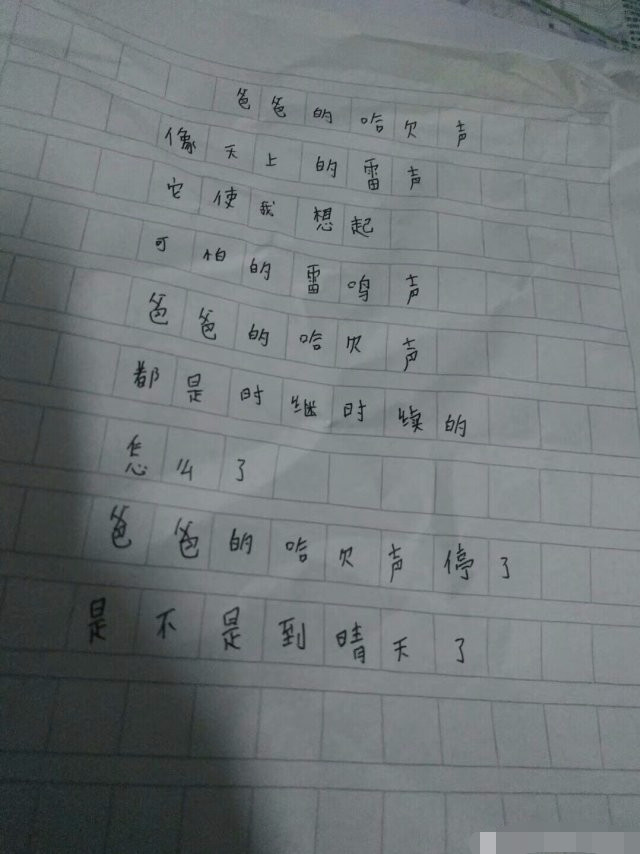 爸爸的哈欠声
像天上的雷声
它使我想起
可怕的雷鸣声
爸爸的哈欠声
都是时继时续的
怎么了
爸爸的哈欠声停了
是不是到晴天了